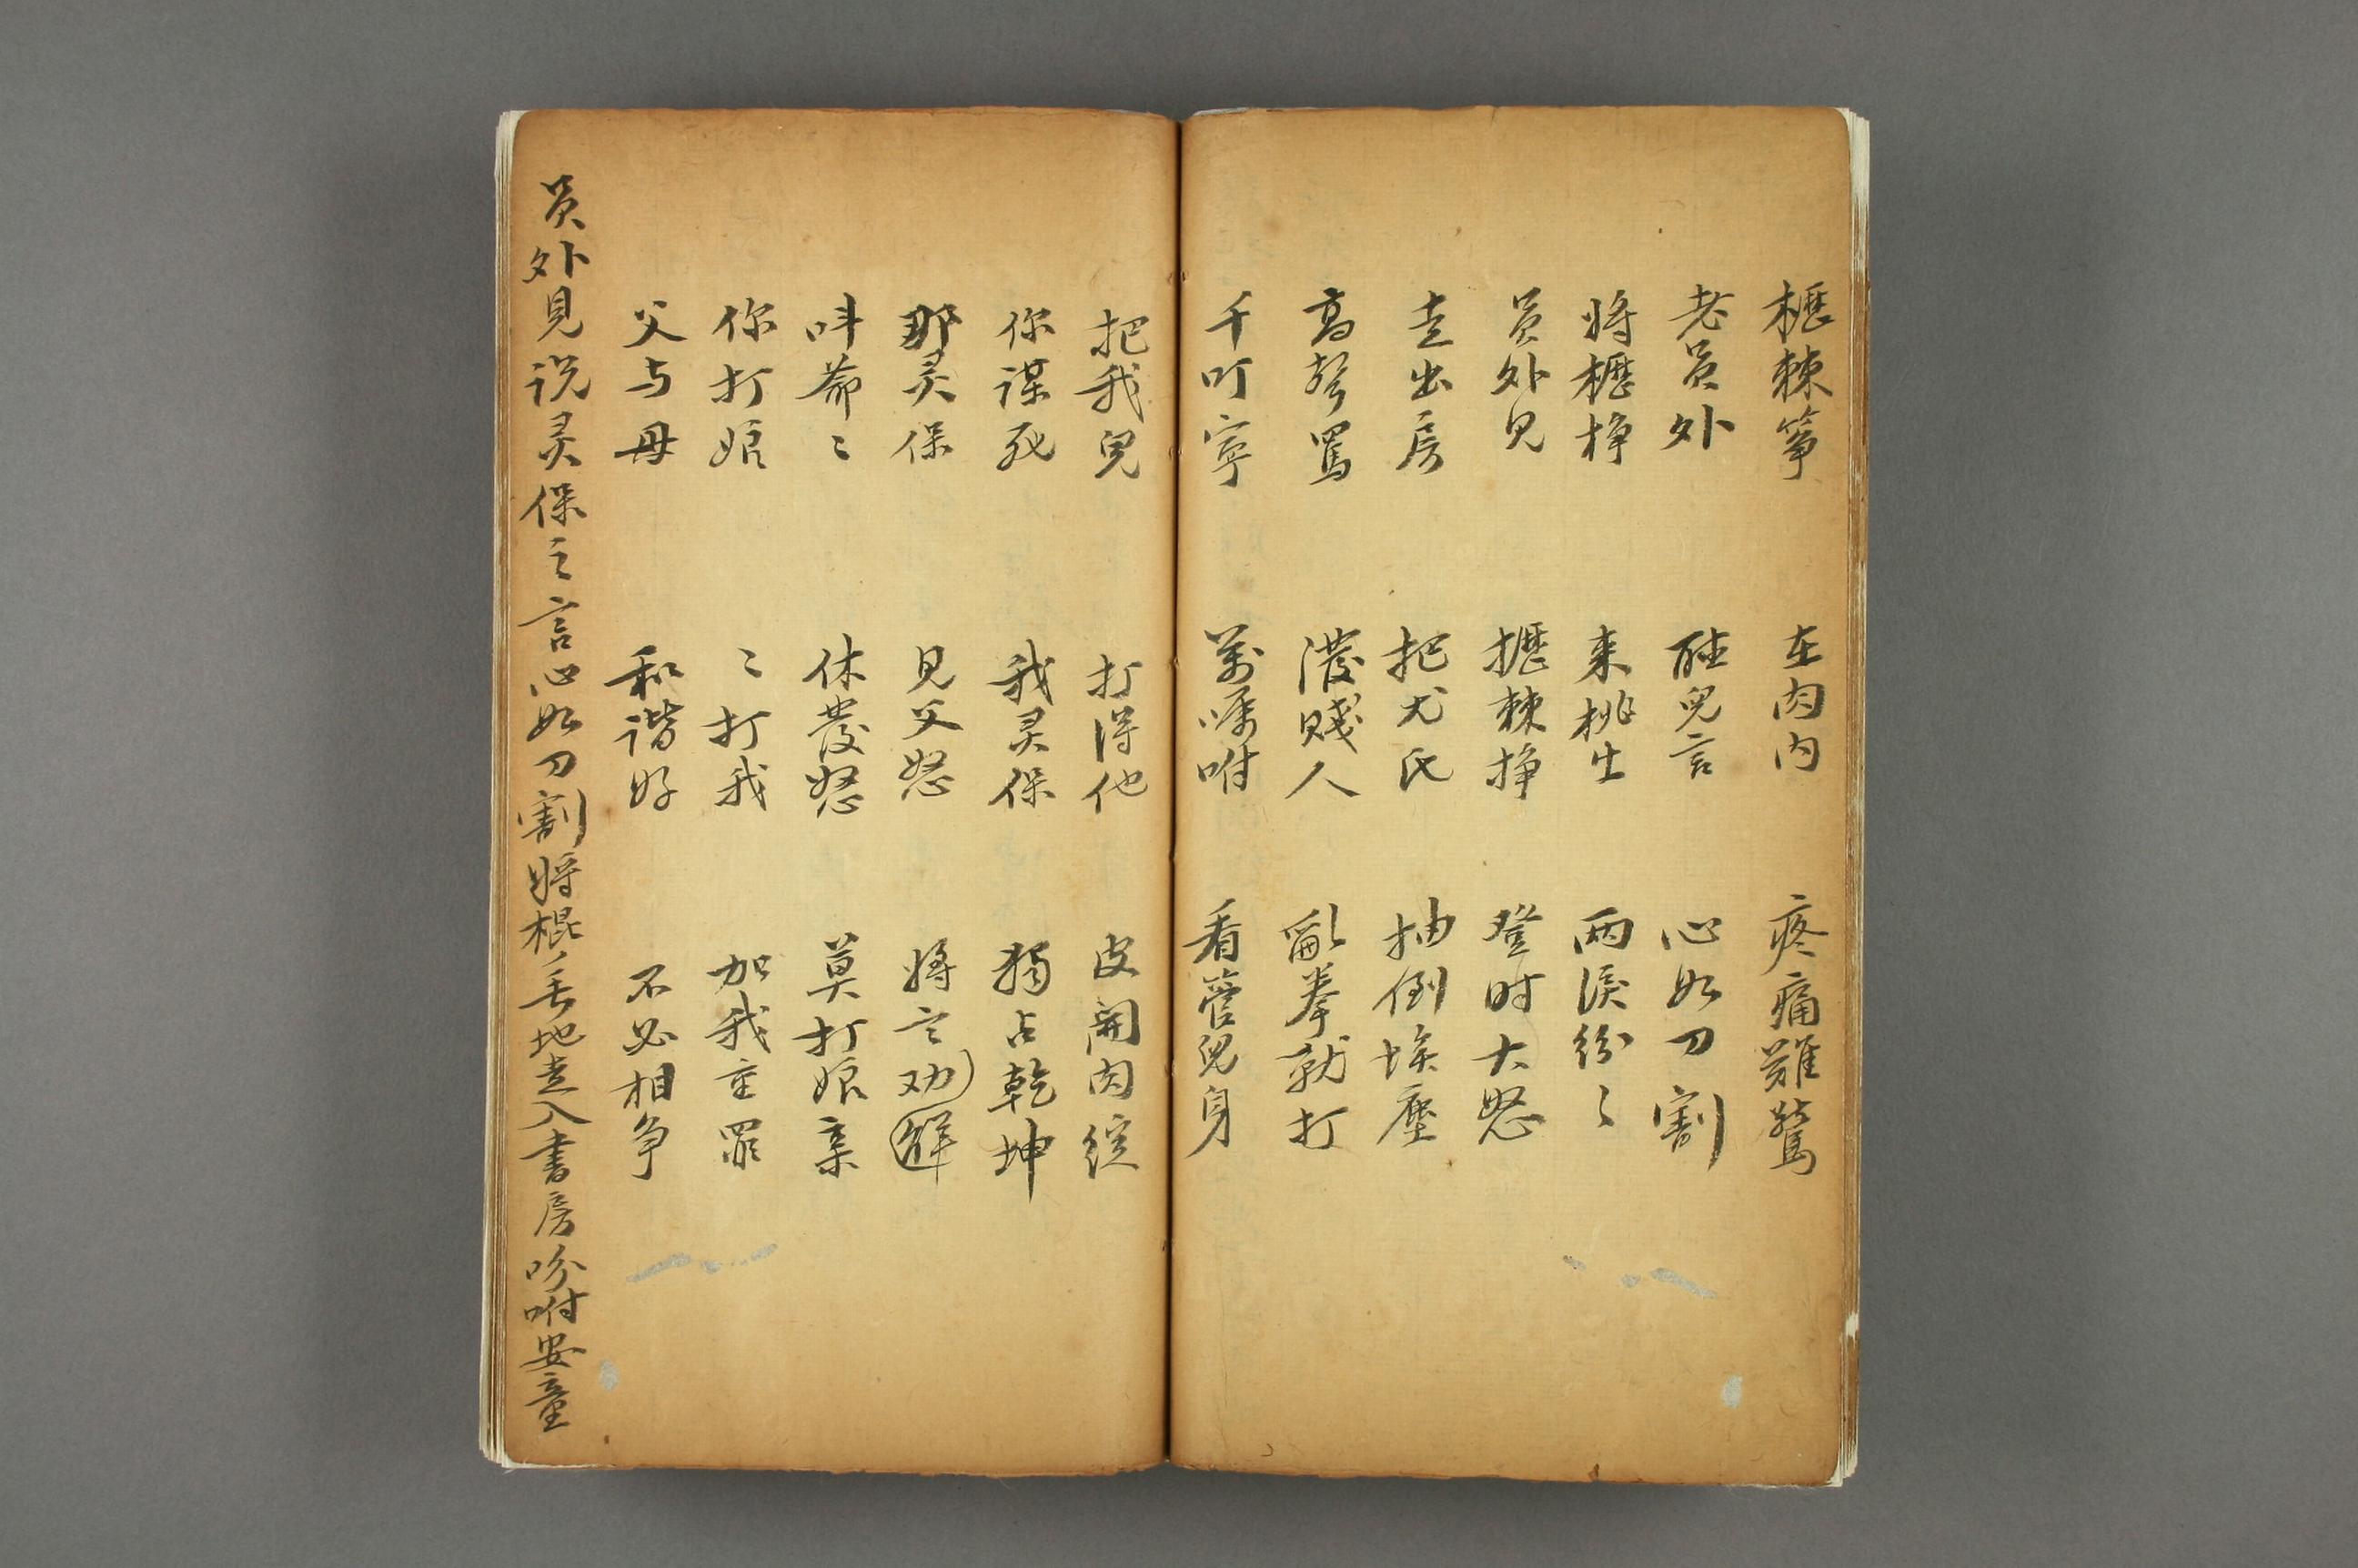 櫪棘筝 在肉内 疼痛難驚
老員外 聽兒言 心如刀割
將櫪棦 来桃生 兩淚紛〻
員外見 攊棘掙 登时大怒
走出房 把尤氏 抽倒埃塵
高聲罵 潑賤人 亂拳就打
千叮寧 萬嘱咐 看管兒身
把我兒 打得他 皮開肉綻
你謀死 我灵保 獨占乾坤
那灵保 見父怒 將言劝解
叫爺〻 休發怒 莫打娘亲
你打娘 〻打我 加我重罪
父与母 和谐好 不必相争
員外見说灵保之言心如刀割將棍丢地走入書房吩咐安童